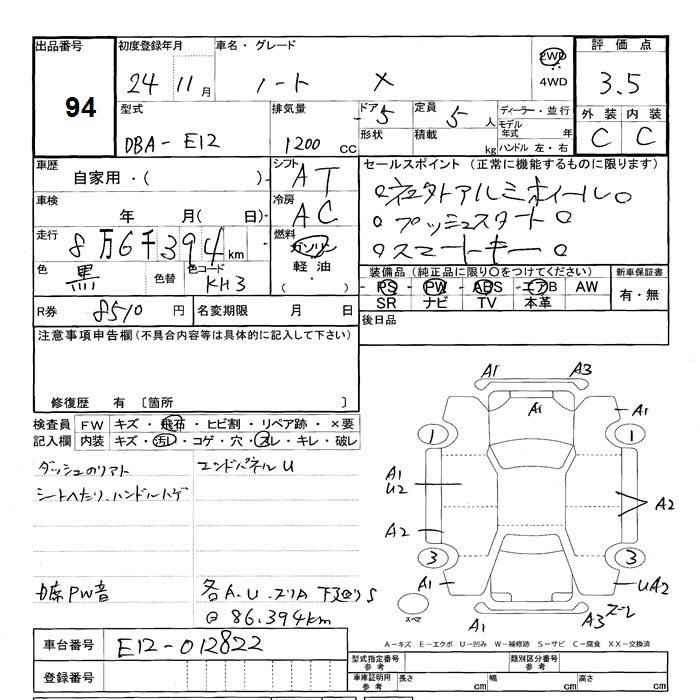 出品番号 初度登録年月 車名・グレード 2WD 4WD 評価点
94 24 11月 ノート X 3.5
型式 排気量 ドア 5 定員 5人 ディーラー・並行 外装 内装
DBA-E12 1200 CC 形状 積載 kg モデル年式 年 ハンドル 左・右 C C
車歴 自家用・( ) シフト AT セールスポイント (正常に機能するものに限ります)
車検 年 月( 日) 冷房 AC
○プッシュスタート○
走行 8万6千394km 燃料 ガソリン 軽油・( ) ○スマートキー○
色 黒 色替 色コード KH3 装備品(純正品に限り○をつけてください) 新車保証書
PS・PW・ABS・エアB AW 有・無
SR ナビ TV 本革
R券 8510円 名変期限 月 日 後日品
注意事項申告欄(不具合内容等は具体的に記入して下さい)
修復歴 有〔箇所 〕
検査員記入欄 FW キズ・飛石・ヒビ割・リペア跡・×要
内装 キズ・汚レ・コゲ・穴・スレ・キレ・破レ
エンドパネルU
シートヘたり、ハンドルハゲ
PW音 各A.U.スリA 下廻りS
@86.394km
A1 A3
A1 A1
1 1
A1 U2 A2
A2
3 3
A1 UA2
スペア A1 A3
A-キズ E-エクボ U-凹み W-補修跡 S-サビ C-腐食 XX-交換済
車台番号 E12-012822
登録番号
型式指定番号 参考 類別区分番号 参考
車庫証明用 参考 長さ cm 幅 cm 高さ cm